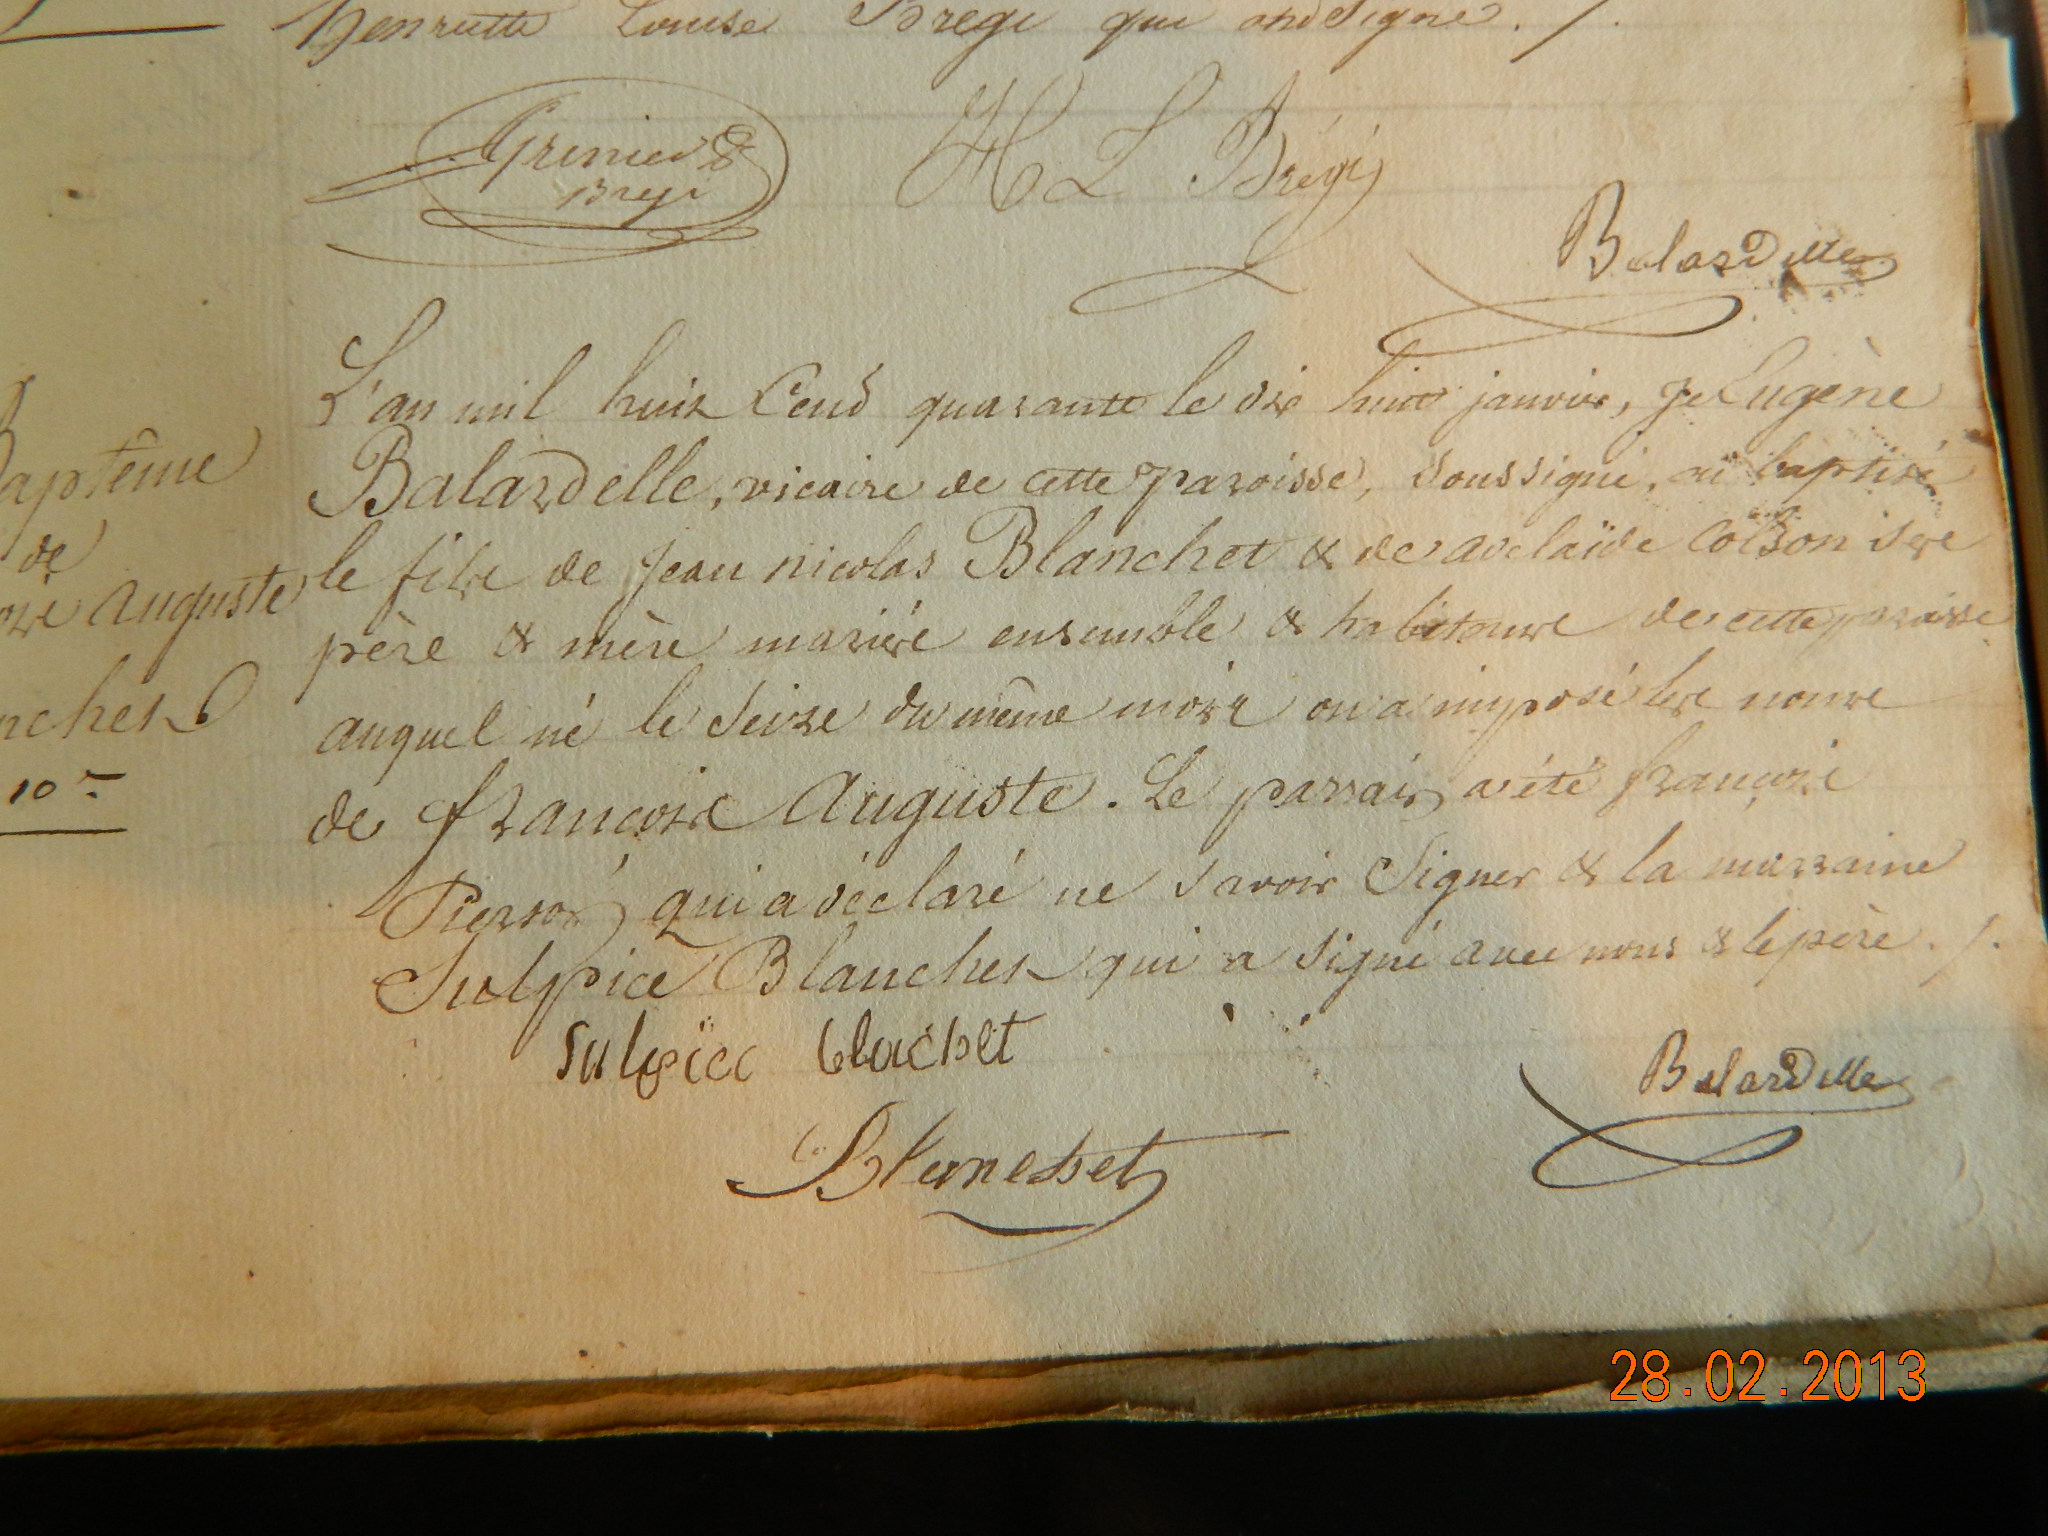 Henriette Louise Bregi qui ont signé. /.
Grenier
Bregi
H L Brégi
Balardelle
L'an mil huit Cent quarante le dix huit janvier, je Eugène
Balardelle, vicaire de cette paroisse, soussigné, ai baptisé
le fils de Jean nicolas Blanchet & de adelaïde Colson ses
père & mère mariés ensemble & habitans de cette paroisse
auquel né le seize du même mois on a imposé les noms
de françois Auguste. Le parrain a été françois
qui a déclaré ne savoir signer & la marraine
Sulpice Blanchet qui a signé avec nous & le père. /.
Baptême
de
Auguste
nchet
10
sulpice blachet
Blanchet
Balardelle
28.02.2013